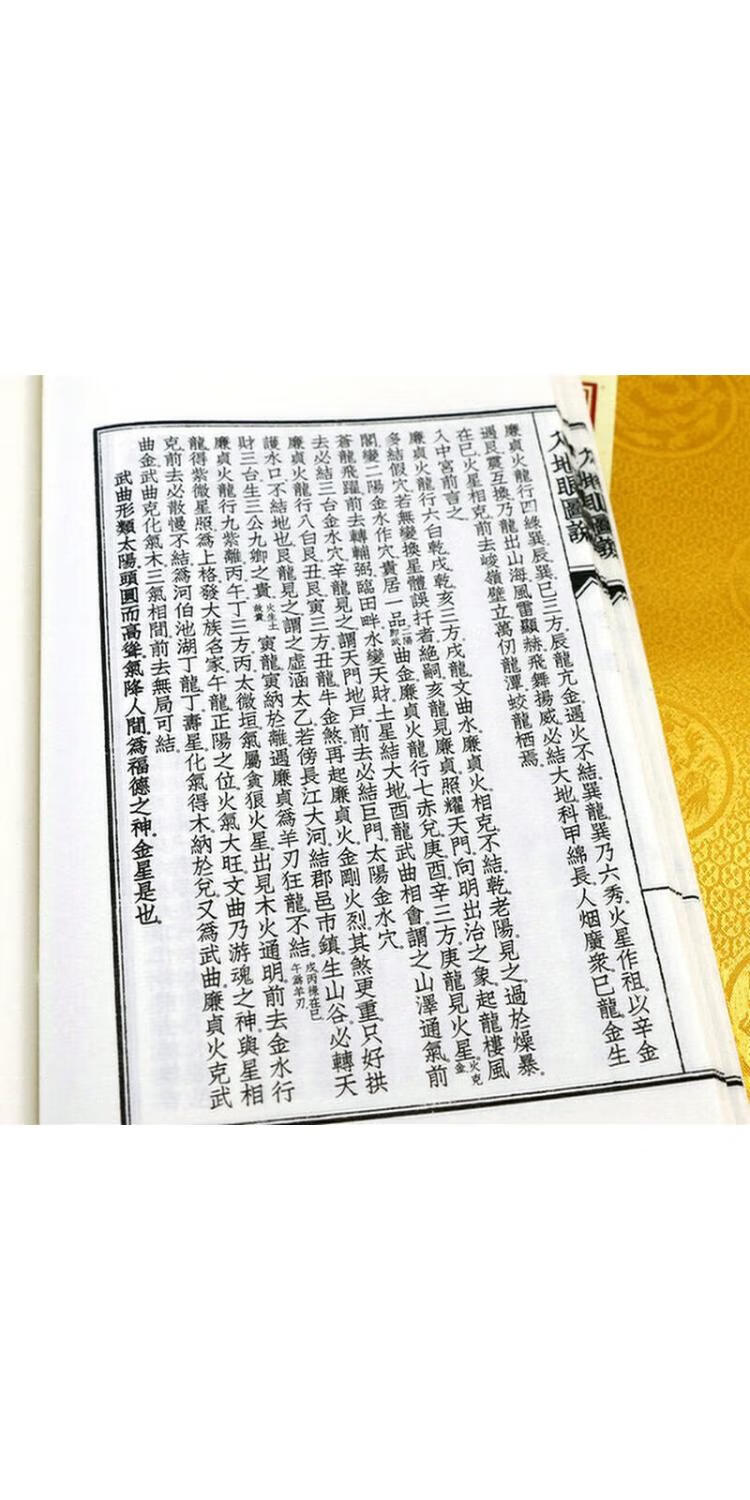 入地眼圖說
廉貞火龍行四綠巽辰巽巳三方。辰龍亢金遇火不結。巽龍巽乃六秀。火星作祖。以辛金
遇艮震互換。乃龍出山海。風雷顯赫。飛舞揚威。必結大地。科甲綿長。人烟廣衆。巳龍金生
在巳。火星相克。前去峻嶺壁立。萬仞龍潭。蛟龍栖焉。
入中宮前言之。
廉貞火龍行六白乾戌乾亥三方。戌龍文曲水。廉貞火相克不結。乾老陽見之過於燥暴。
多結假穴。若無變換星體。誤扦者絶嗣。亥龍見廉貞照耀天門。向明出治之象。起龍樓風
閣。變二陽金水作穴。貴居一品。二陽即武曲金。廉貞火龍行七赤兌庚酉辛三方。庚龍見火星。火克金
蒼龍飛躍。前去轉輔弼。臨田畔水變天財土星結大地。酉龍武曲相會。謂之山澤通氣。前
去必結三台金水穴。辛龍見之。謂天門地戶。前去必結巨門。太陽金水穴。
廉貞火龍行八白艮丑艮寅三方。丑龍牛金煞。再起廉貞火。金剛火烈。其煞更重。只好拱
護水口。不結地也。艮龍見之。謂之虛涵太乙。若傍長江大河。結郡邑市鎮。生山谷。必轉天
財三台。生三公九卿之貴。火生土故貴 寅龍寅納於離。遇廉貞爲羊刃狂龍。不結。戊丙祿在巳午爲羊刃
廉貞火龍行九紫離丙午丁三方。丙太微垣氣屬貪狼。火星出見。木火通明。前去金水行
龍。得紫微星照爲上格。發大族名家。午龍正陽之位。火氣大旺。文曲乃游魂之神。與星相
克。前去必散慢不結。爲河伯池湖。丁龍丁壽星。化氣得木。納於兌。又爲武曲。廉貞火克武
曲金。武曲克化氣木。三氣相間。前去無局可結。
武曲形類太陽。頭圓而高聳。氣降人間。爲福德之神。金星是也。